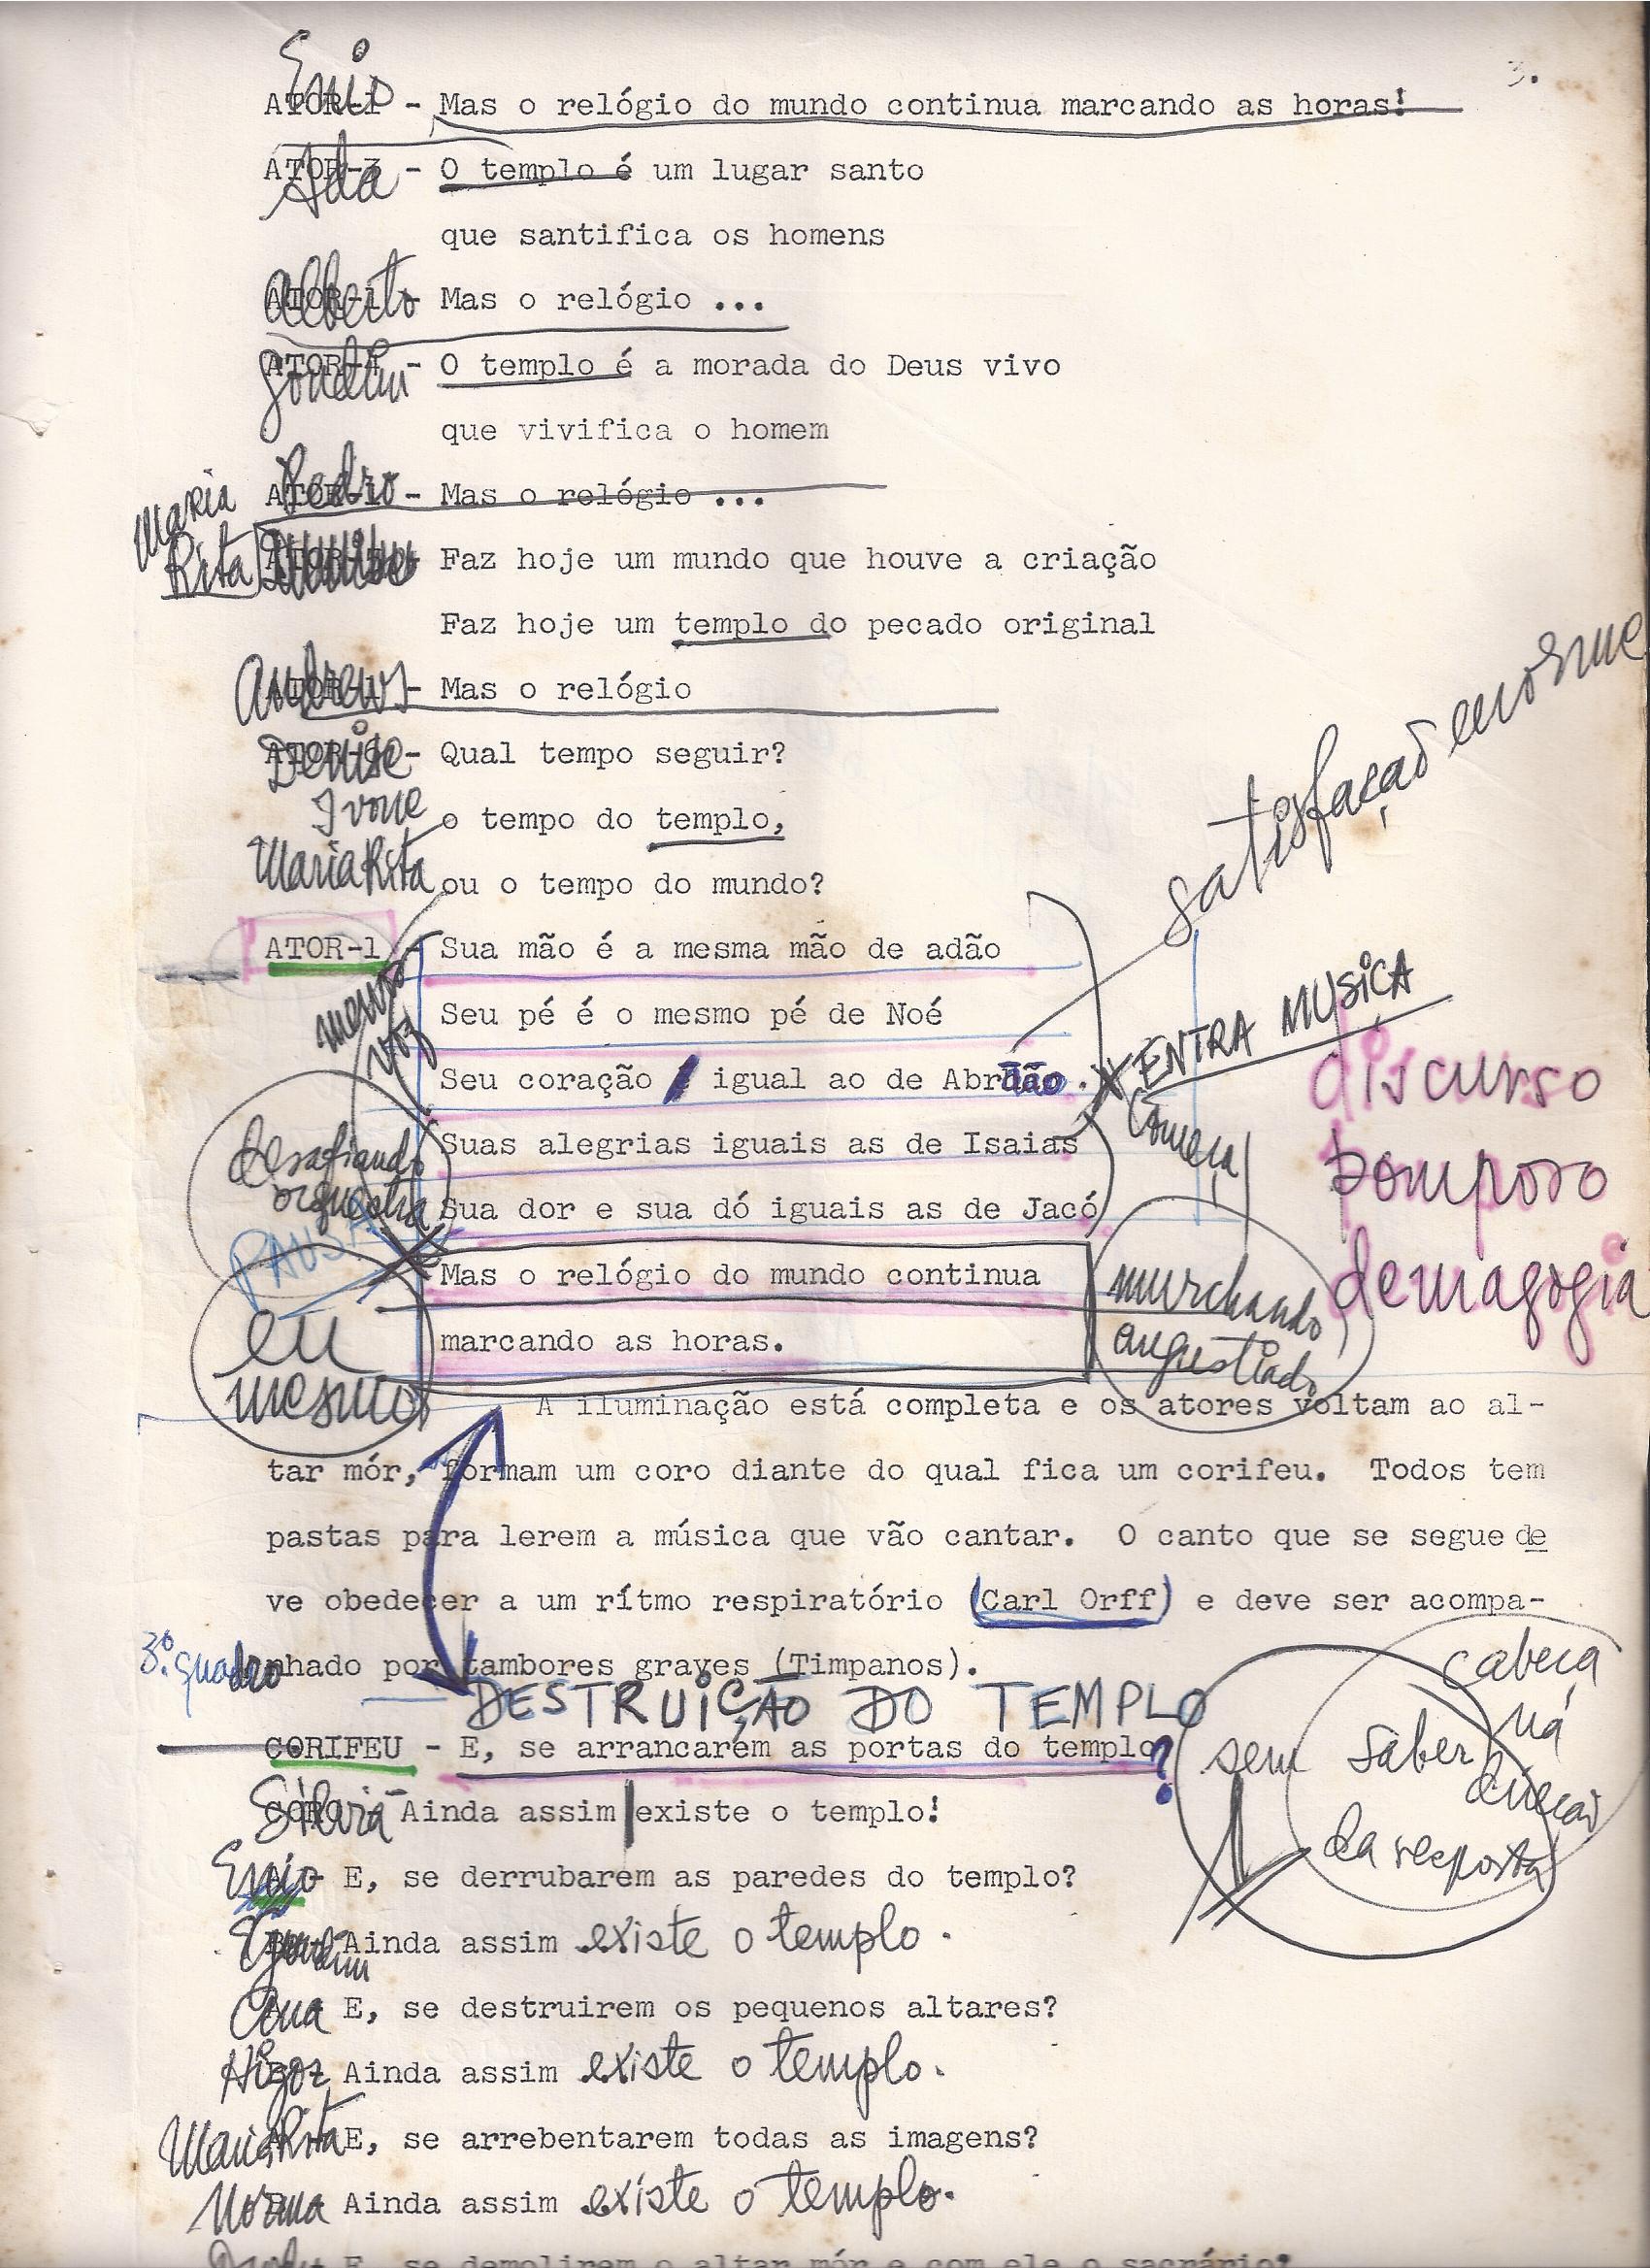 3.
Enio
ATOR-1 - Mas o relógio do mundo continua marcando as horas!
Ada
ATOR-3 - O templo é um lugar santo
que santifica os homens
Alberto
ATOR-1 - Mas o relógio ...
ATOR-4 - O templo é a morada do Deus vivo
que vivifica o homem
Pedro
ATOR-1 - Mas o relógio ...
Maria Rita
Faz hoje um mundo que houve a criação
Faz hoje um templo do pecado original
Andrews
ATOR-1 - Mas o relógio
Denise
Qual tempo seguir?
Ivone
o tempo do templo,
Maria Rita
ou o tempo do mundo?
satisfação enorme
ATOR-1 - Sua mão é a mesma mão de adão
mesma voz
Seu pé é o mesmo pé de Noé
ENTRA MUSICA
Seu coração igual ao de Abrãão.
começa
discurso
pomposo
demagogia
desafiando orquestra
Suas alegrias iguais as de Isaias
PAUSA
Sua dor e sua dó iguais as de Jacó
Mas o relógio do mundo continua
marcando as horas.
murchando
angustiado
eu
mesmo
A iluminação está completa e os atores voltam ao al-
tar mór, formam um coro diante do qual fica um corifeu. Todos tem
pastas para lerem a música que vão cantar. O canto que se segue de
ve obedecer a um rítmo respiratório (Carl Orff) e deve ser acompa-
nhado por tambores graves (Timpanos).
3º quadro
DESTRUIÇÃO DO TEMPLO
CORIFEU - E, se arrancarem as portas do templo?
sem saber
da resposta
cabeça
Silvia
CORO - Ainda assim existe o templo!
Enio
E, se derrubarem as paredes do templo?
Ainda assim existe o templo.
Ana
E, se destruirem os pequenos altares?
Higoz
Ainda assim existe o templo.
Maria Rita
E, se arrebentarem todas as imagens?
Norma
Ainda assim existe o templo.
E, se demolirem o altar mór e com ele o sacrário?